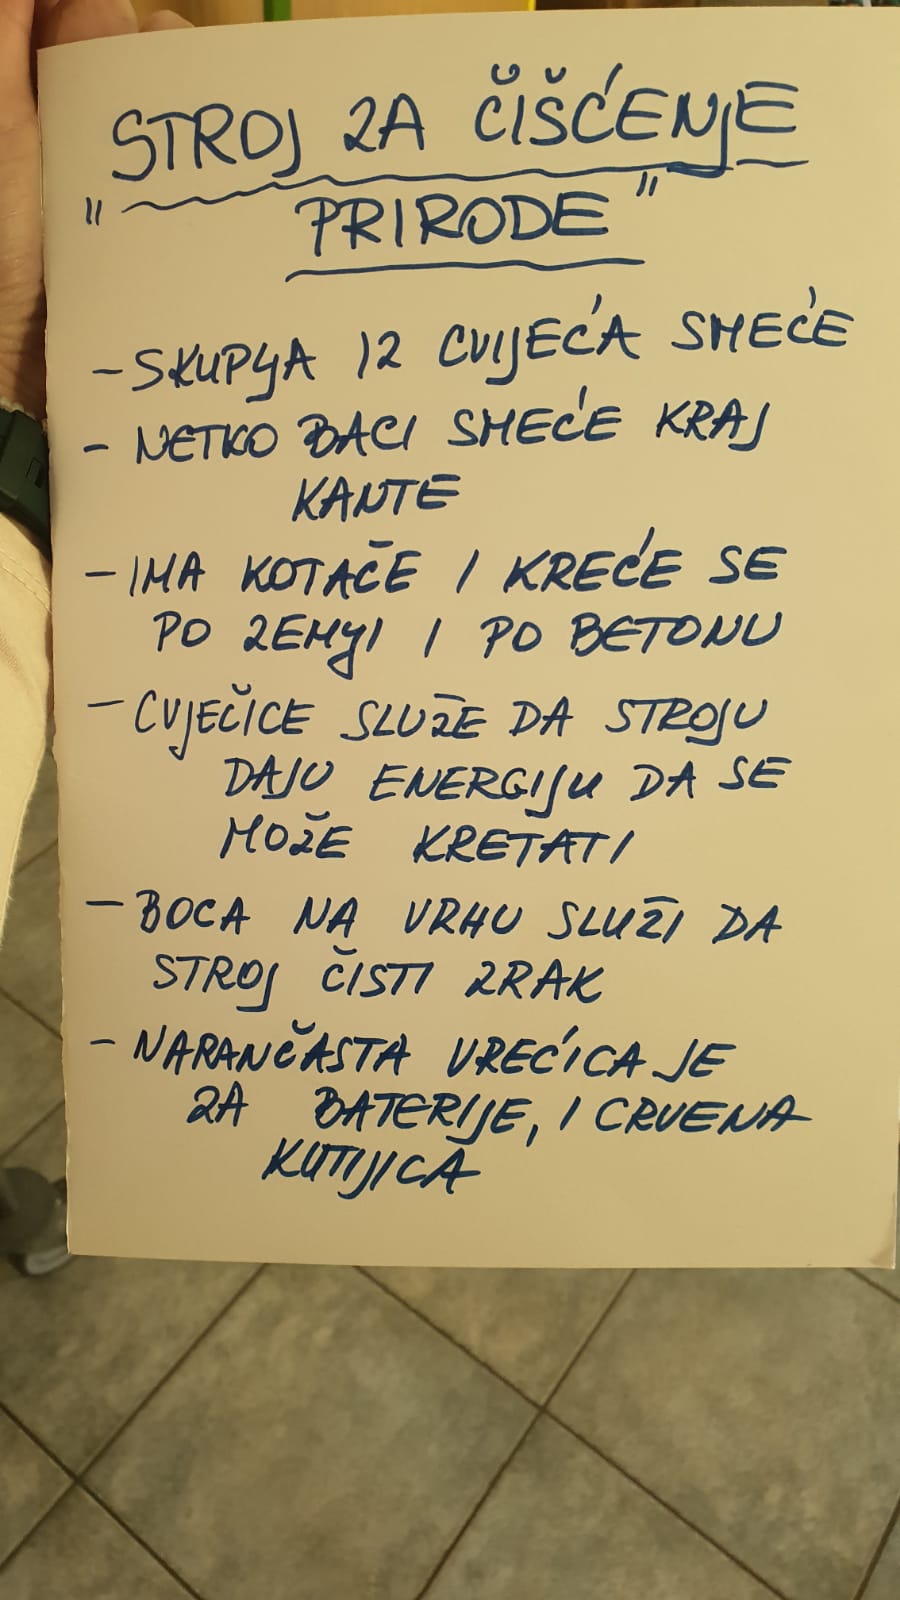 STROJ ZA ČIŠĆENJE
"PRIRODE"
- SKUPLJA IZ CVIJEĆA SMEĆE
- NETKO BACI SMEĆE KRAJ
KANTE
- IMA KOTAČE I KREĆE SE
PO ZEMLJI I PO BETONU
- CVJEČICE SLUŽE DA STROJU
DAJU ENERGIJU DA SE
MOŽE KRETATI
- BOCA NA VRHU SLUŽI DA
STROJ ČISTI ZRAK
- NARANČASTA VREĆICA JE
ZA BATERIJE, I CRVENA
KUTIJICA